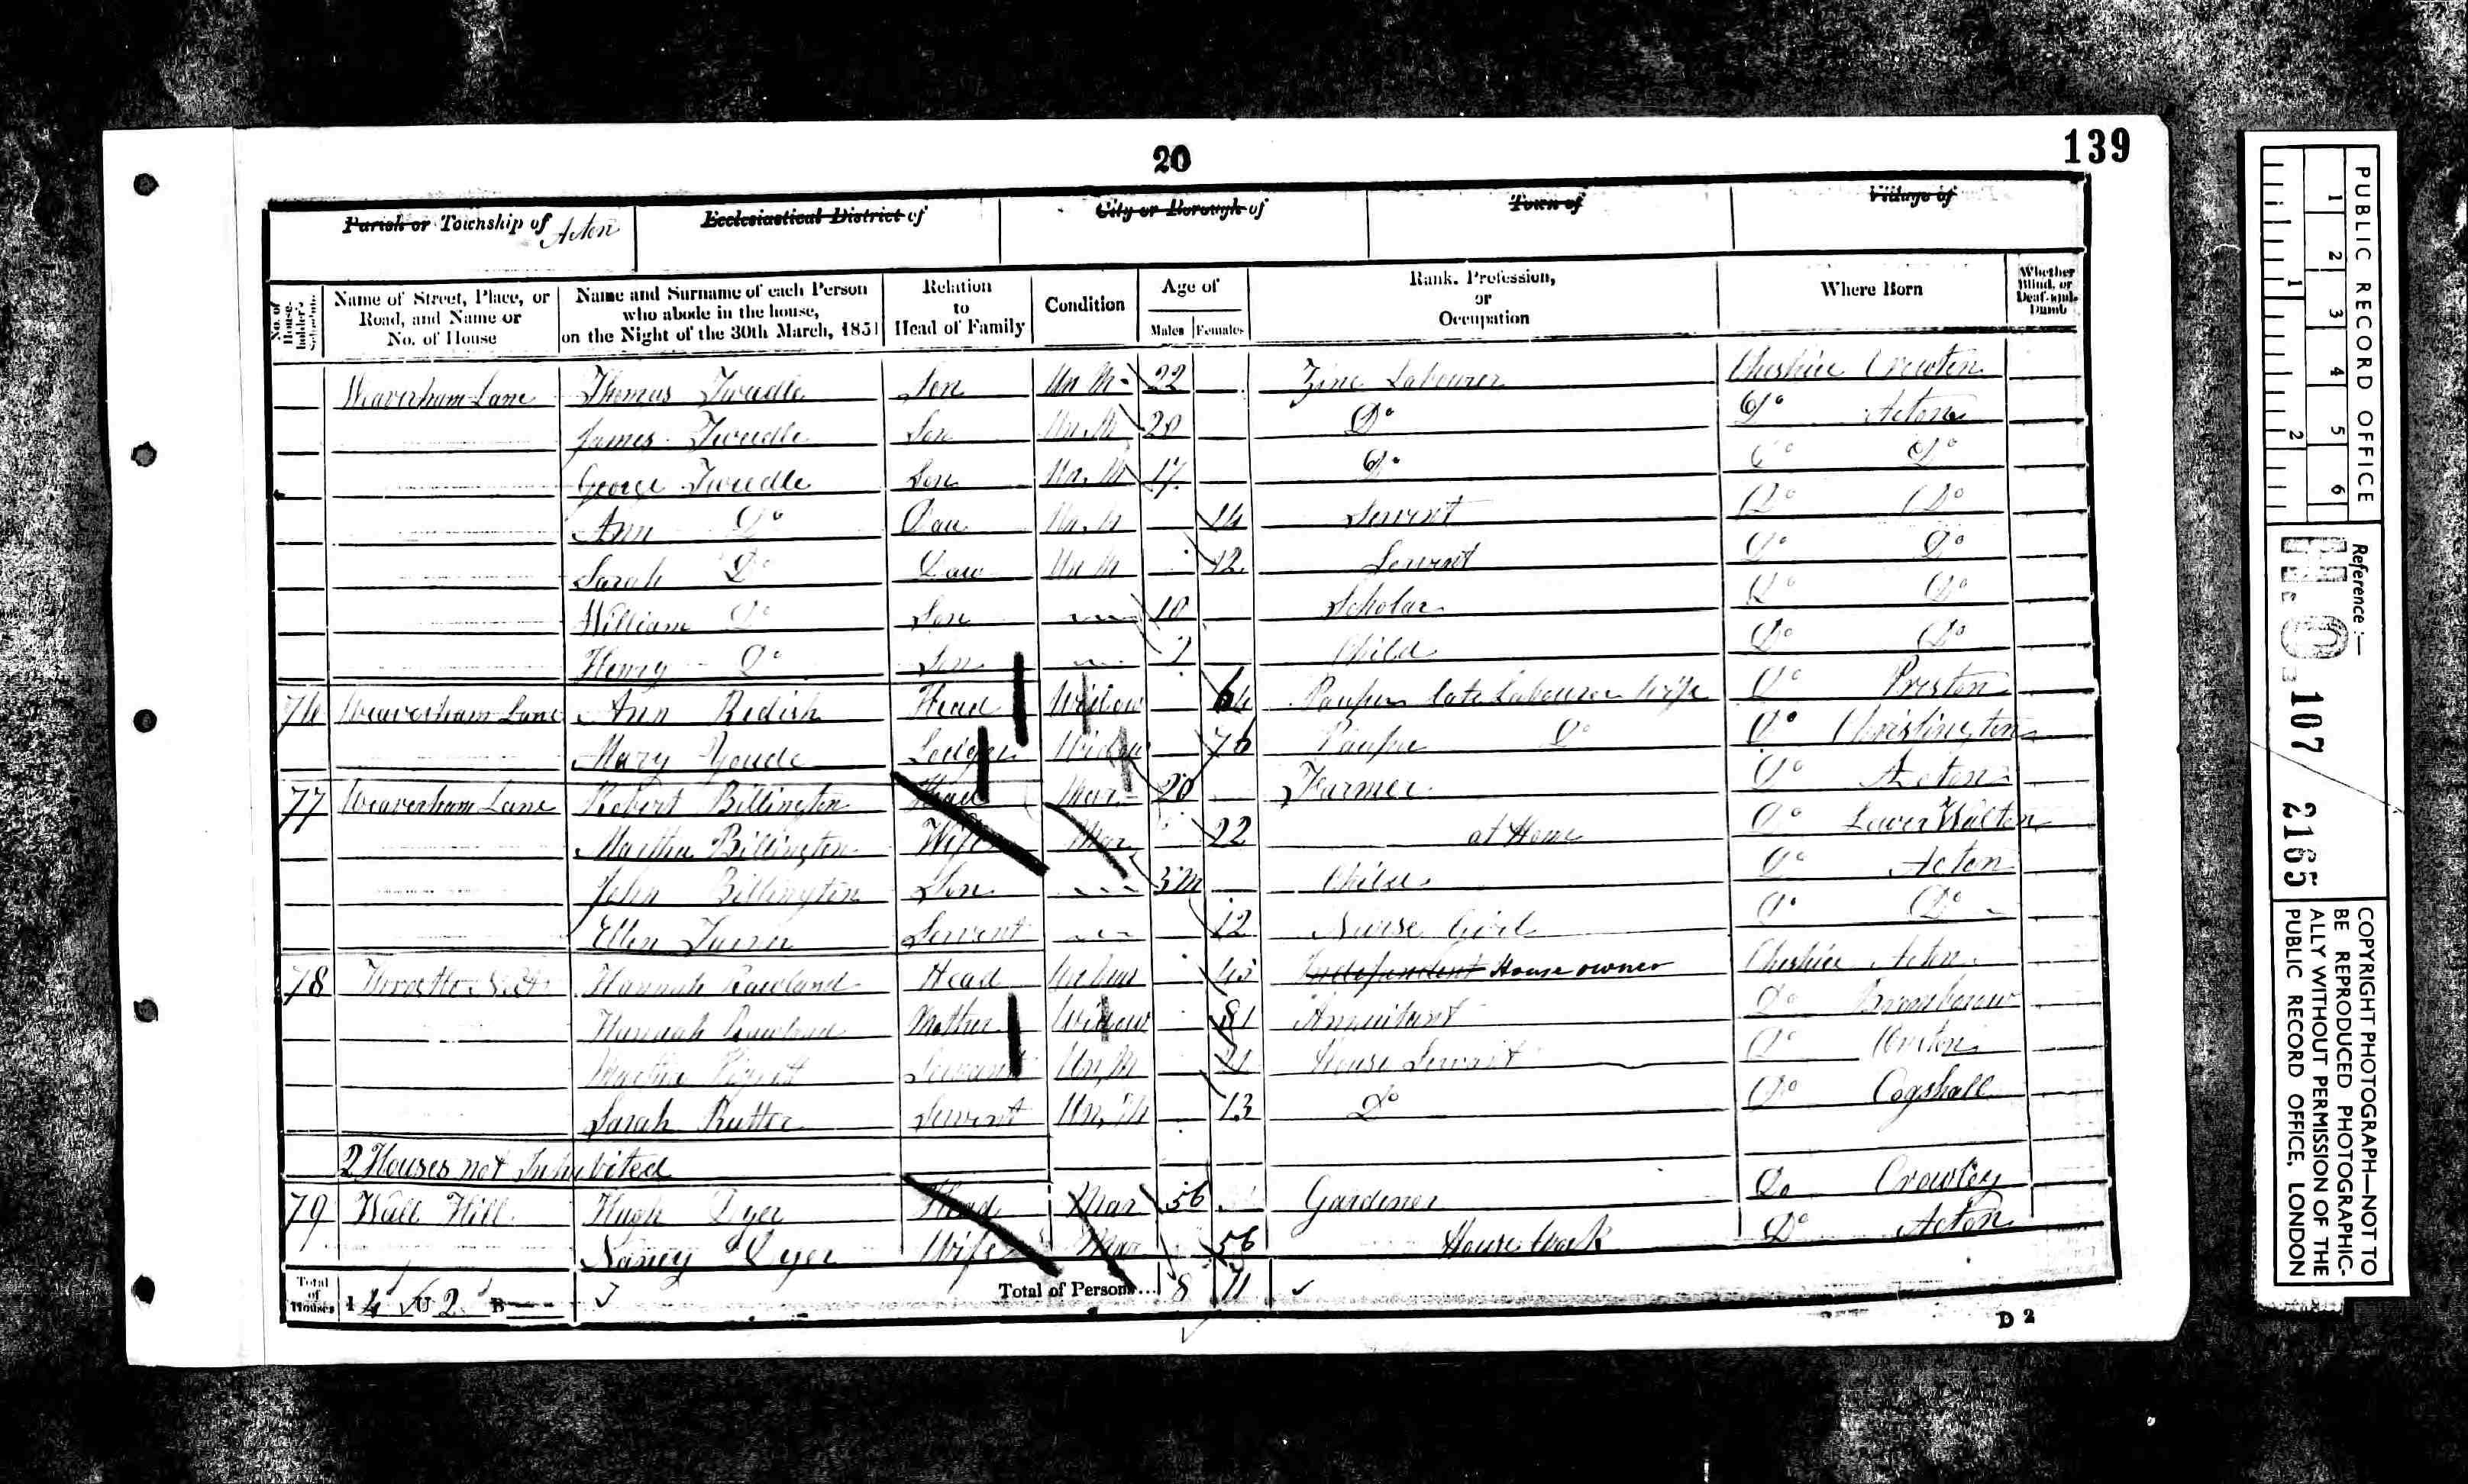 20
139
Parish or Township of Acton Ecclesiastical District of City or Borough of Town of Village of
No. of House-holder's Schedule
Name of Street, Place, or Road, and Name or No. of House
Name and Surname of each Person who abode in the house, on the Night of the 30th March, 1851
Relation to Head of Family
Condition
Age of
Males Females
Rank, Profession, or Occupation
Where Born
Whether Blind, or Deaf-and-Dumb
Weaverham Lane Thomas Tweedle Son Un M 22 Labourer Cheshire Crowton
James Tweedle Son Un M 20 Do Do Acton
George Tweedle Son Un M 17 Do Do Do
Ann Do Dau Un M 14 Servent Do Do
Sarah Do Dau Un M 12 Servent Do Do
William Do Son 10 Scholar Do Do
Henry Do Son 7 Child Do Do
76 Weaverham Lane Ann Redish Head Widow 64 Pauper late Labourer Wife Do Preston
Mary Goude Lodger Widow 76 Pauper Do Do
77 Weaverham Lane Robert Billington Head Mar 20 Farmer Do Acton
Martha Billington Wife Mar 22 at Home Do Lower Walton
John Billington Son 3m Child Do Acton
Ellen Servent 12 Nurse Girl Do Do
78 Hannah Rowland Head 45 Independent House owner Cheshire Acton
Hannah Rowland Mother Widow 81 Annuitant Do
Martha Servant Un M 21 House Servant Do
Sarah Rutter Servent Un M 13 Do Do Cogshall
2 Houses not Inhabited
79 Wall Hill Hugh Dyer Head Mar 56 Gardener Do Crowley
Nancy Dyer Wife Mar 56 House Work Do Acton
Total of Houses I 4 U 2 B — Total of Persons... 8 11
D 2
PUBLIC RECORD OFFICE
1 2 3 4 5 6
1 2
Reference:—
H.O. 107 / 2165
COPYRIGHT PHOTOGRAPH—NOT TO
BE REPRODUCED PHOTOGRAPHIC-
ALLY WITHOUT PERMISSION OF THE
PUBLIC RECORD OFFICE, LONDON